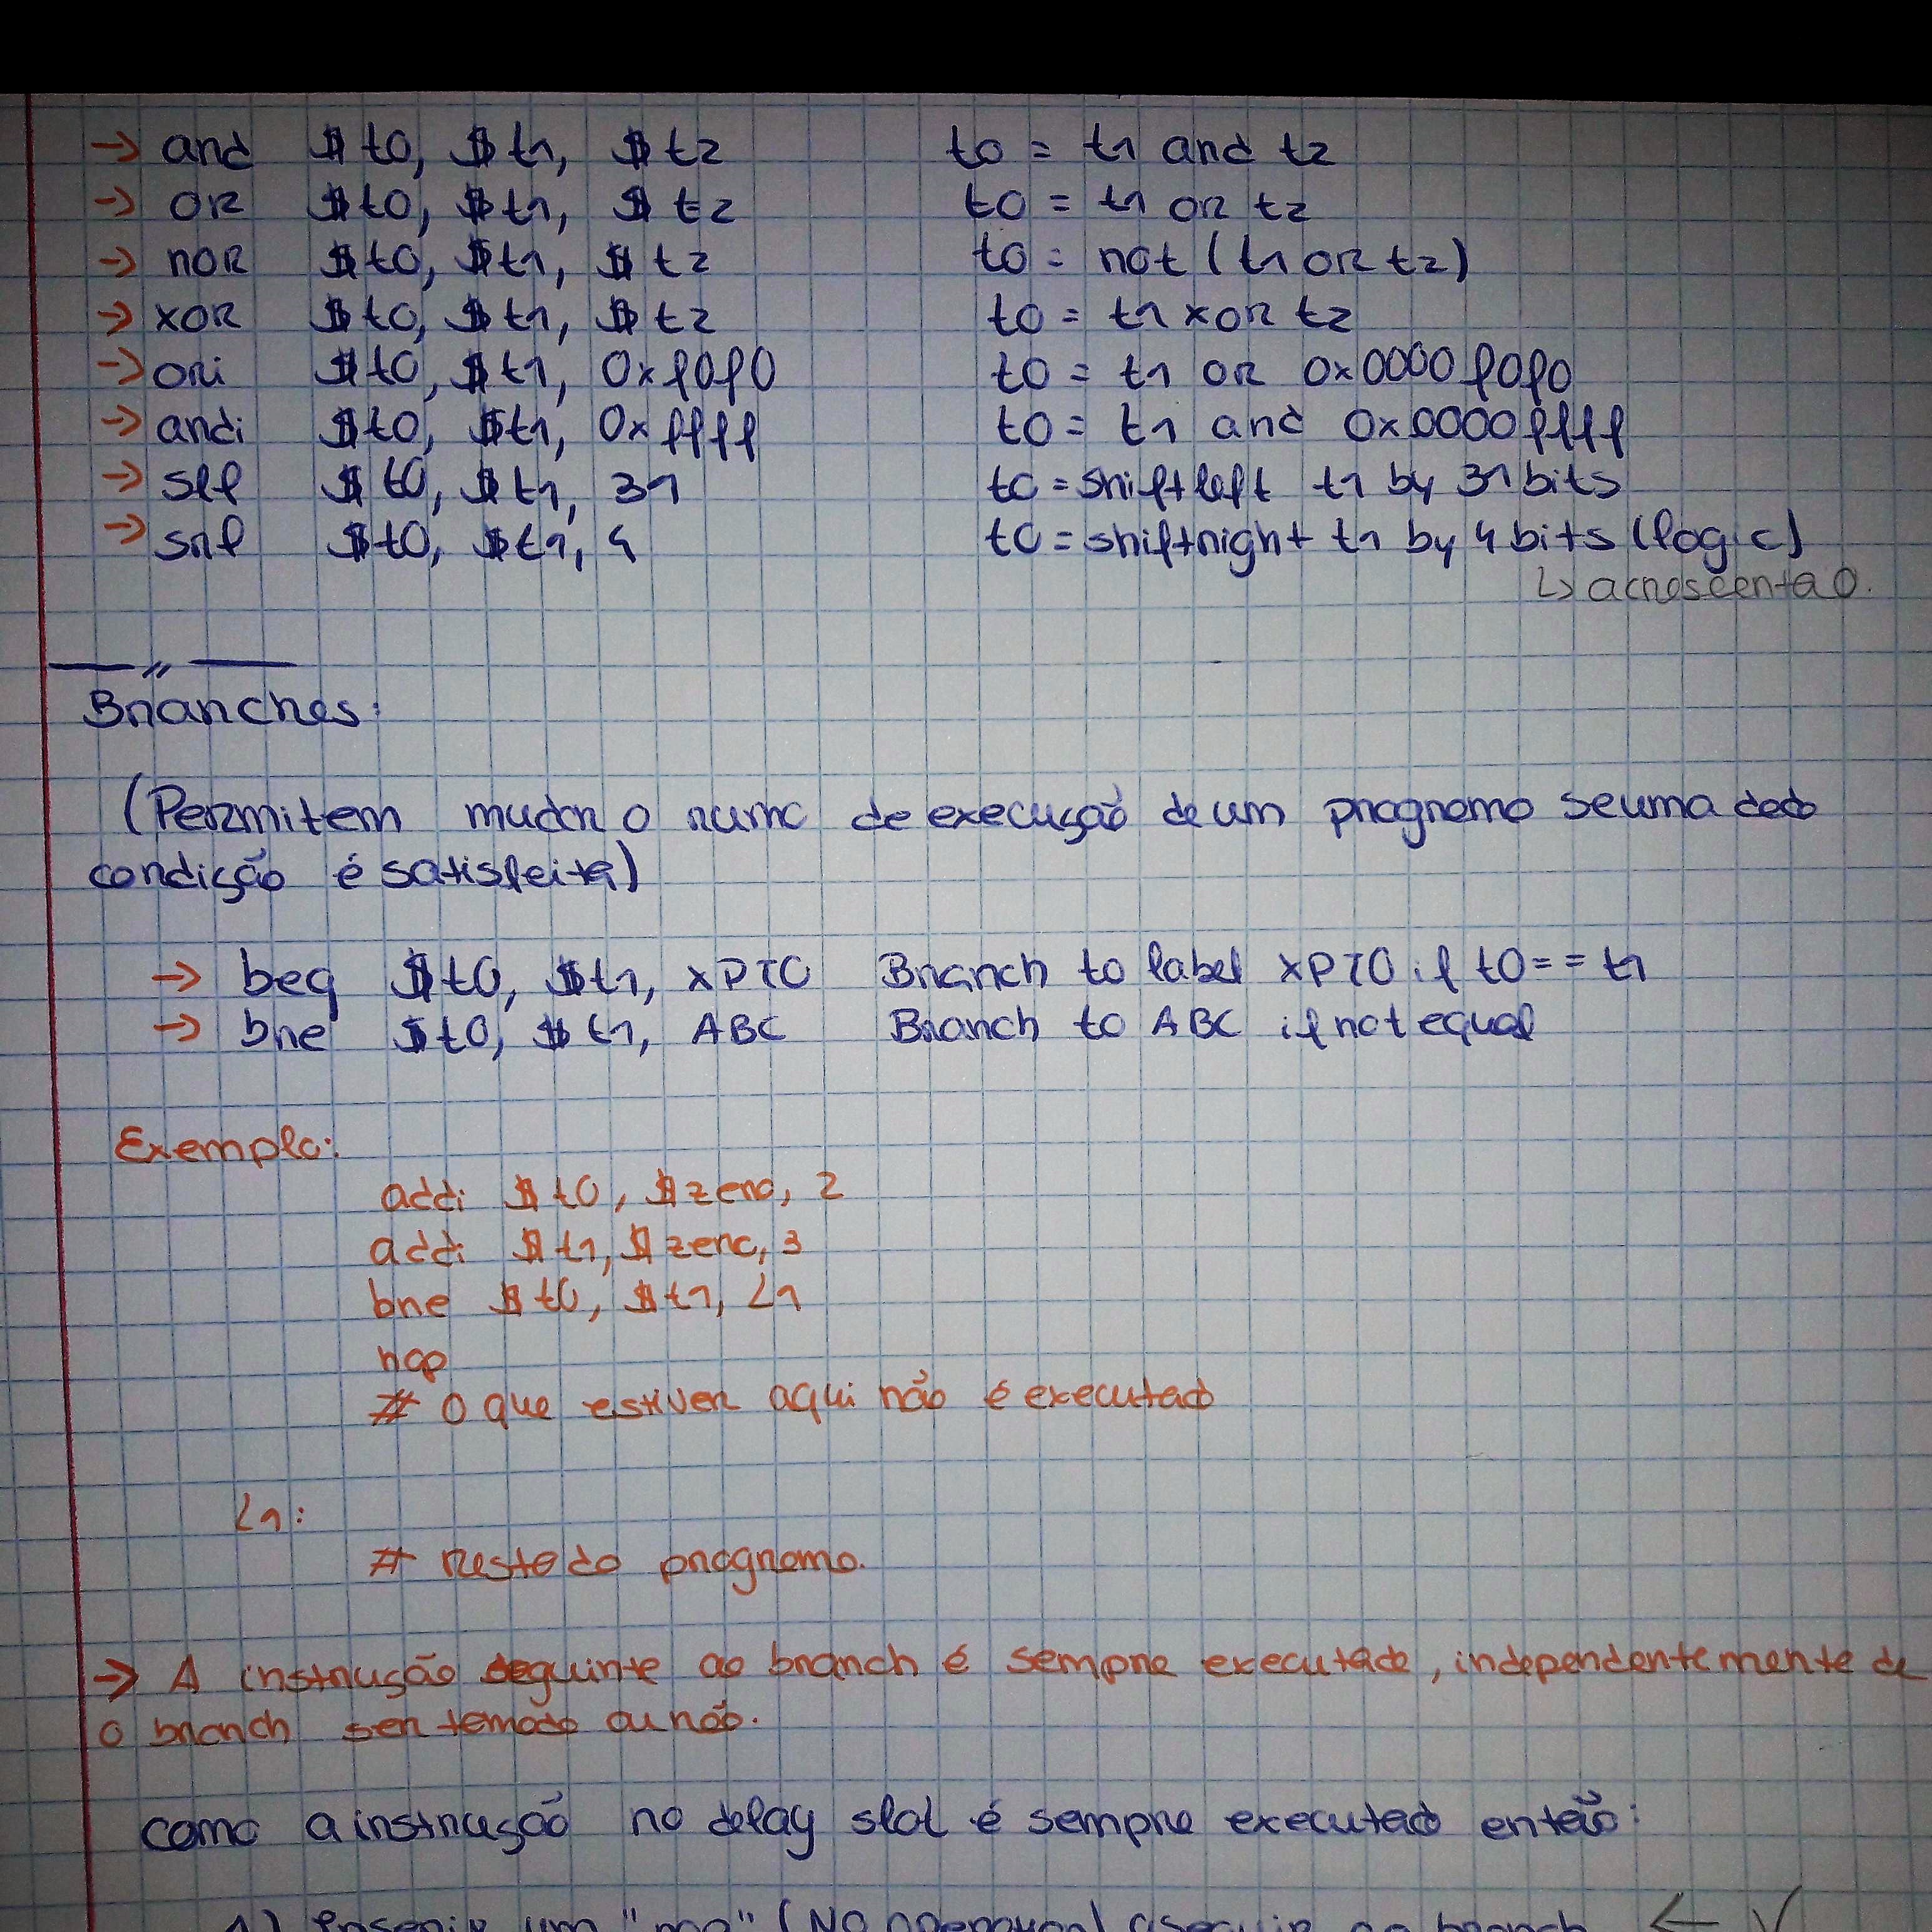 → and $t0, $t1, $t2 t0 = t1 and t2
→ or $t0, $t1, $t2 t0 = t1 or t2
→ nor $t0, $t1, $t2 t0 = not (t1 or t2)
→ xor $t0, $t1, $t2 t0 = t1 xor t2
→ ori $t0, $t1, 0xf0f0 t0 = t1 or 0x0000f0f0
→ andi $t0, $t1, 0xffff t0 = t1 and 0x0000ffff
→ sll $t0, $t1, 31 t0 = shift left t1 by 31 bits
→ srl $t0, $t1, 4 t0 = shift right t1 by 4 bits (logic)
↳ acrescenta 0.
Branches:
(Permitem mudar o rumo de execução de um programa se uma dada
condição é satisfeita)
→ beq $t0, $t1, XPTO Branch to label XPTO if t0 == t1
→ bne $t0, $t1, ABC Branch to ABC if not equal
Exemplo:
addi $t0, $zero, 2
addi $t1, $zero, 3
bne $t0, $t1, L1
nop
# O que estiver aqui não é executado
L1:
# resto do programa.
→ A instrução seguinte ao branch é sempre executada, independentemente de
o branch ser tomado ou não.
como a instrução no delay slot é sempre executado então:
1) Inserir um "nop" (No operation) a seguir ao branch ← √